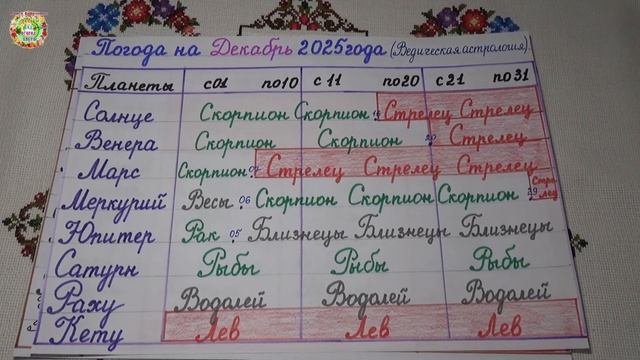 Погода на Декабрь 2025 года (Ведическая астрология).
Планеты с 01 по 10 с 11 по 20 с 21 по 31
Солнце Скорпион Скорпион Стрелец Стрелец
Венера Скорпион Скорпион 20 Стрелец
Марс Скорпион Стрелец Стрелец Стрелец
Меркурий Весы 06 Скорпион Скорпион Скорпион 29 Стрелец
Юпитер Рак 05 Близнецы Близнецы Близнецы
Сатурн Рыбы Рыбы Рыбы
Раху Водолей Водолей Водолей
Кету Лев Лев Лев